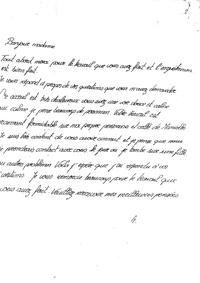 Bonjour madame
Tout d'abord merci pour le travail que vous avez fait et l'organisation
est bien fait.
Je vous répond a propos de vos questions que vous m'avez demander
L'accueil est très chaleureux vous avez une voix douce et calme
qui calme je pense beaucoup de personnes. Votre travail est
vraiment formidable
Je suis très content de vous avoir connue et je pense que nous
je prendrais contact avec vous si par on je tombe sur une
ou autres problèmes. Voila j'espère que j'ai répondu a vos
questions. Je vous remercie beaucoup pour le travail que
vous avez fait. Veuillez recevoir mes meilleures pensées